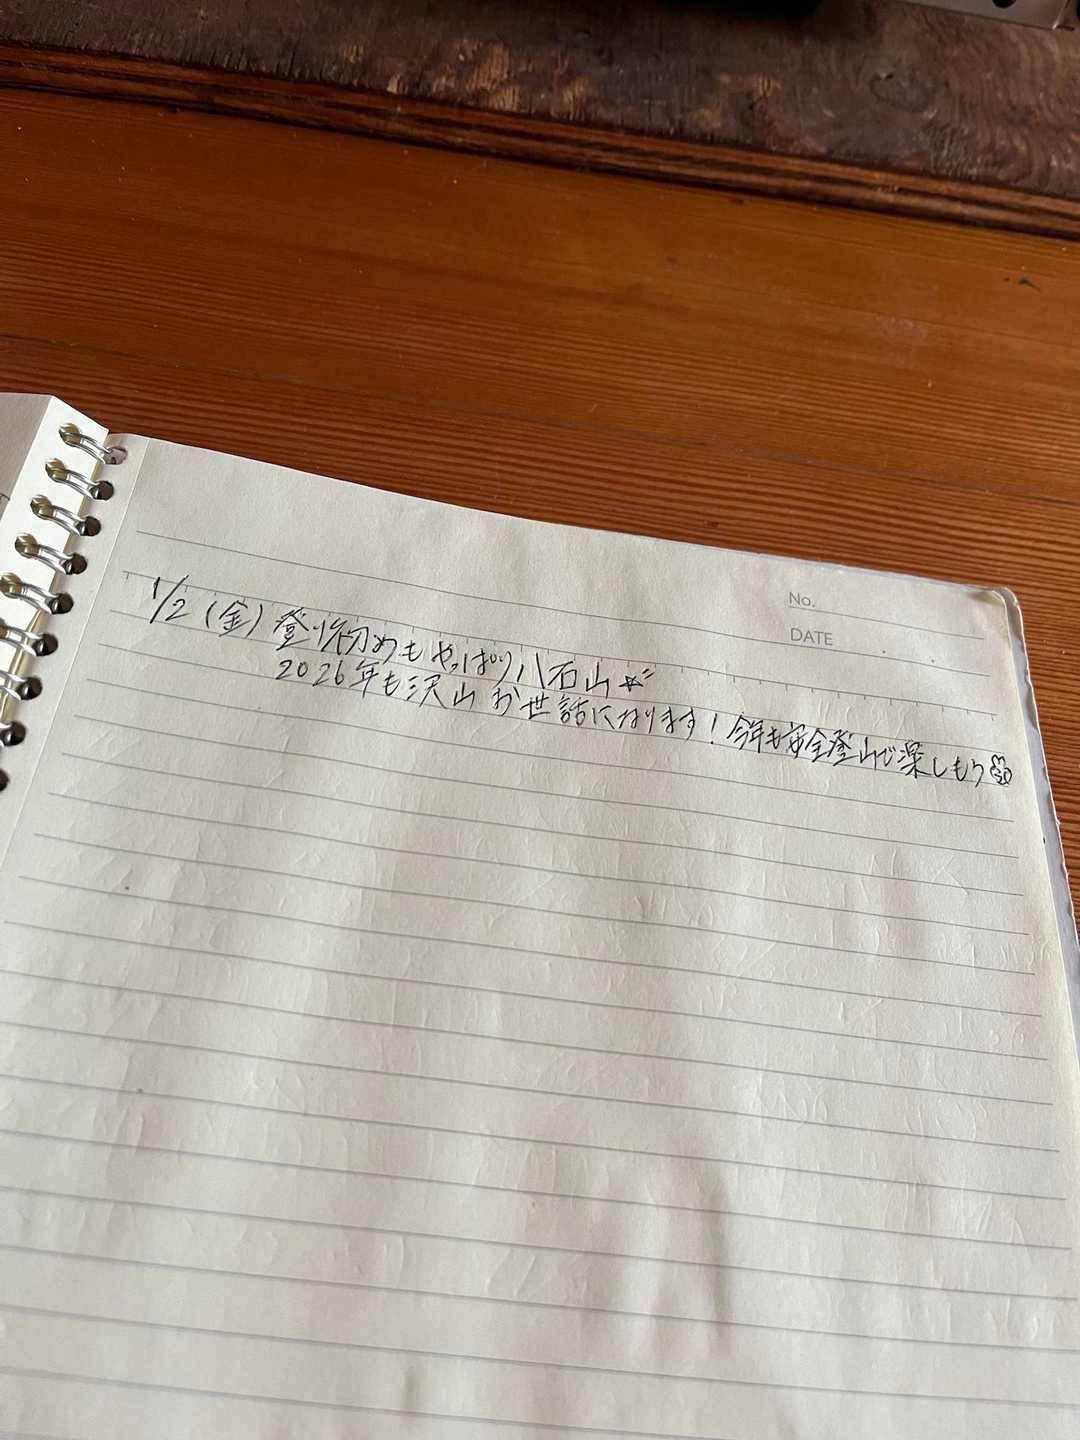 No.
DATE
1/2 (金) 登り初めもやっぱり八石山☆
2026年も沢山お世話になります!今年も安全登山で楽しもう